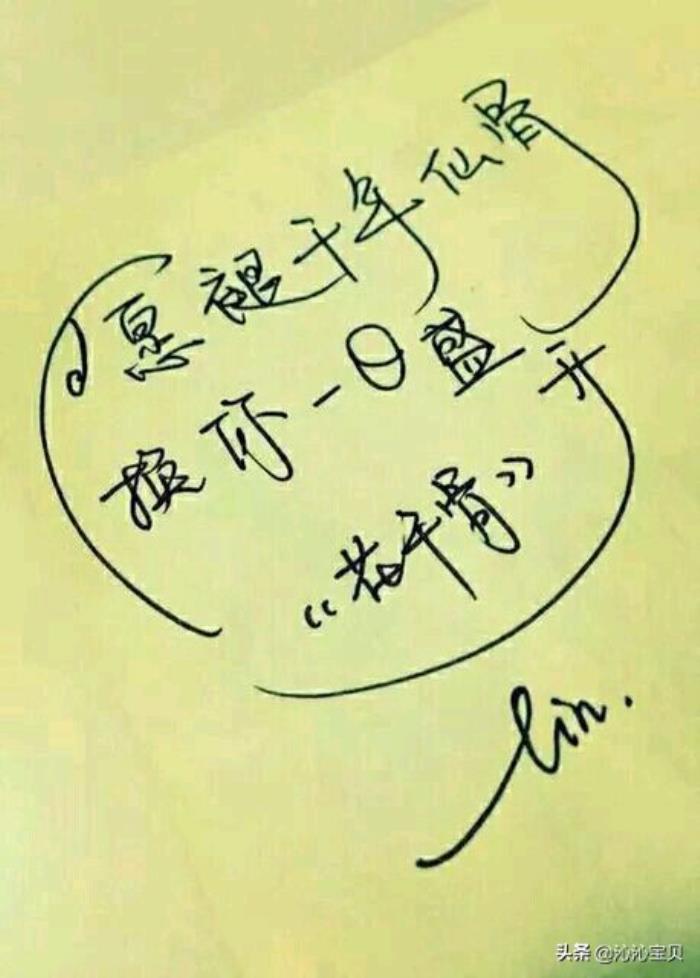 愿褪千年仙骨
换你一日盛开
“花千骨”
lin.
头条 @沁沁宝贝